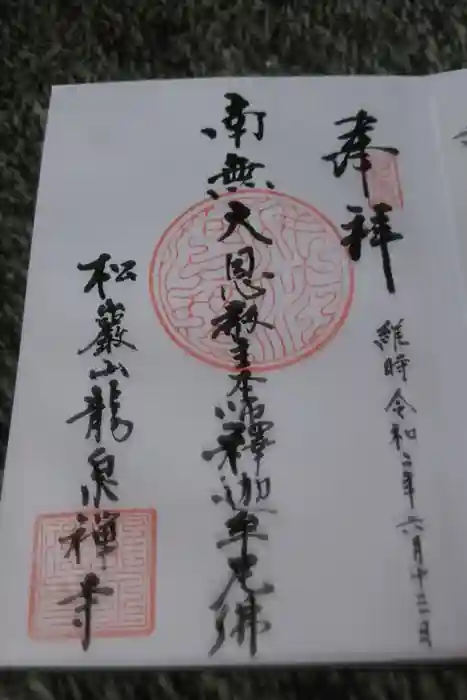 奉拝
維時令和二年六月十三日
南無大恩教主本師釋迦牟尼佛
松巖山龍泉禅寺